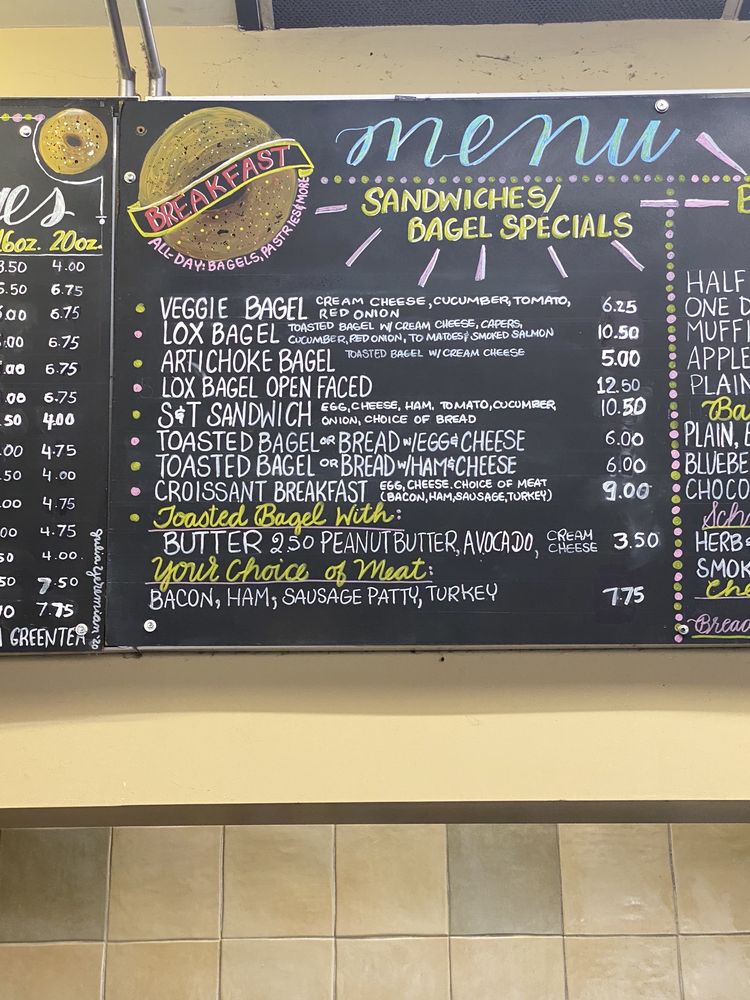 es
16oz. 20oz.
3.50 4.00
5.50 6.75
.00 6.75
.00 6.75
.00 6.75
.00 6.75
.50 4.00
.00 4.75
.50 4.00
.00 4.75
.00 4.75
50 4.00
50 7.50
7.75
GREENTEA
BREAKFAST
ALL-DAY: BAGELS, PASTRIES & MORE
menu
SANDWICHES/
BAGEL SPECIALS
VEGGIE BAGEL CREAM CHEESE, CUCUMBER, TOMATO, 6.25
RED ONION
LOX BAGEL TOASTED BAGEL W/ CREAM CHEESE, CAPERS, 10.50
CUCUMBER, RED ONION, TOMATOES & SMOKED SALMON
ARTICHOKE BAGEL TOASTED BAGEL W/ CREAM CHEESE 5.00
LOX BAGEL OPEN FACED 12.50
S&T SANDWICH EGG, CHEESE, HAM, TOMATO, CUCUMBER, 10.50
ONION, CHOICE OF BREAD
TOASTED BAGEL OR BREAD W/EGG & CHEESE 6.00
TOASTED BAGEL OR BREAD W/HAM & CHEESE 6.00
CROISSANT BREAKFAST EGG, CHEESE, CHOICE OF MEAT 9.00
(BACON, HAM, SAUSAGE, TURKEY)
Toasted Bagel With:
BUTTER 2.50 PEANUT BUTTER, AVOCADO, CREAM CHEESE 3.50
Your Choice of Meat:
BACON, HAM, SAUSAGE PATTY, TURKEY 7.75
HALF
ONE D
MUFF
APPLE
PLAIN
Ba
PLAIN, E
BLUEBE
CHOCO
Sch
HERB
SMOK
Che
Bread